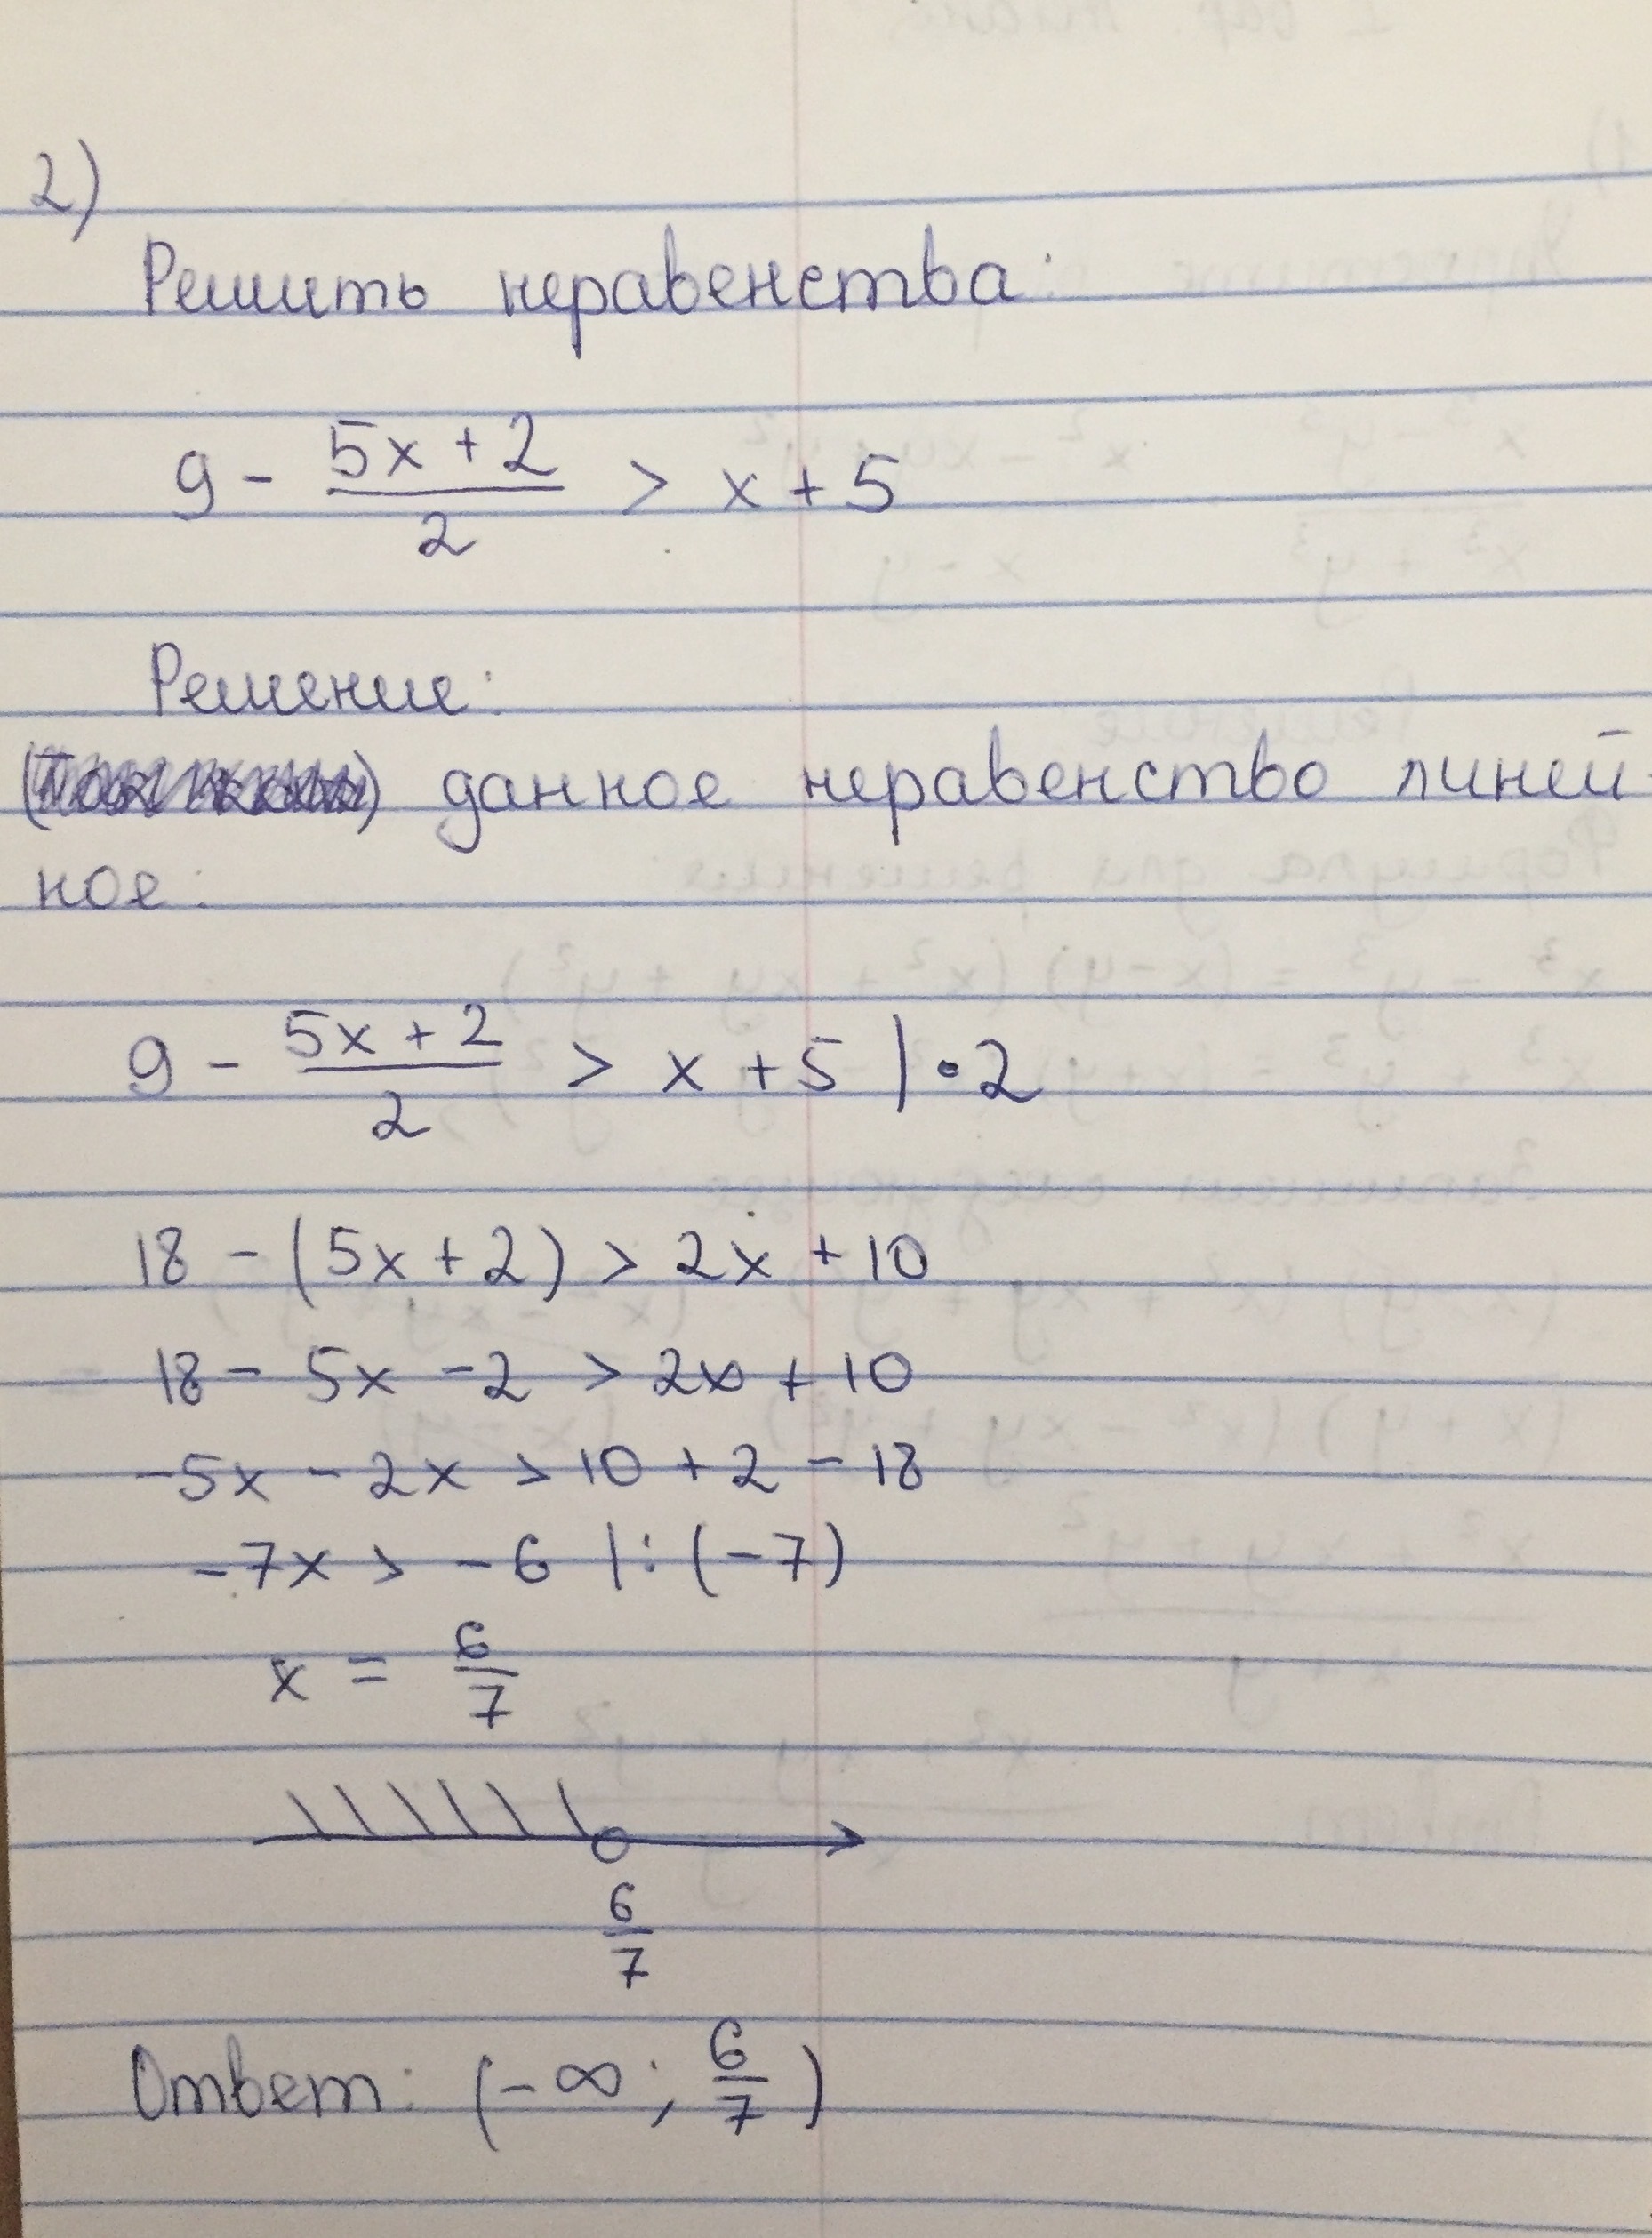 2)
Решить неравенства:
9 - (5x + 2)/2 > x + 5
Решение:
данное неравенство линей-
ное:
9 - (5x + 2)/2 > x + 5 | • 2
18 - (5x + 2) > 2x + 10
18 - 5x - 2 > 2x + 10
-5x - 2x > 10 + 2 - 18
-7x > -6 | : (-7)
x = 6/7
6/7
Ответ: (-∞; 6/7)